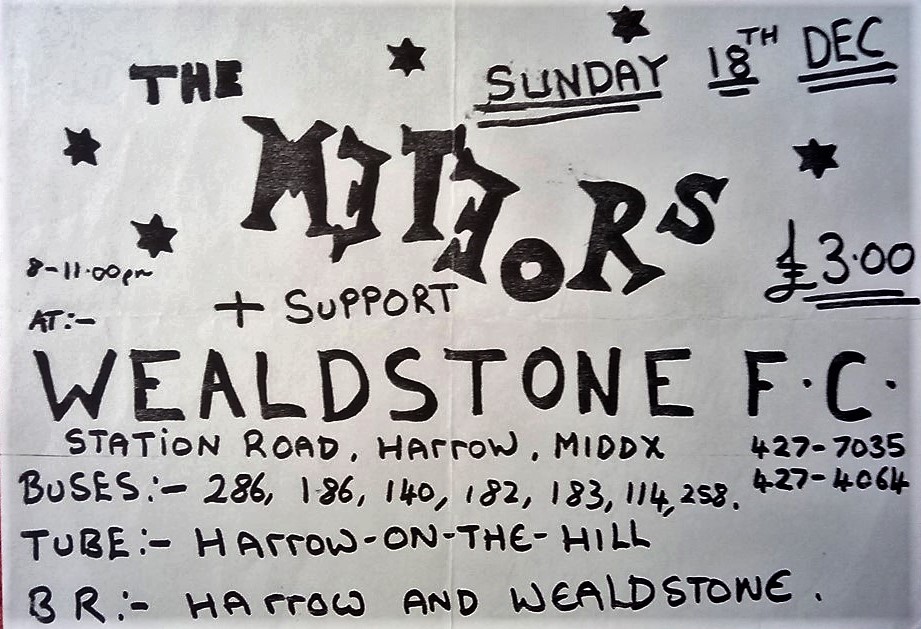 THE
SUNDAY 18TH DEC
METEORS
£3.00
8-11.00pm
+ SUPPORT
AT:-
WEALDSTONE F.C.
STATION ROAD, HARROW, MIDDX 427-7035
427-4064
BUSES:- 286, 186, 140, 182, 183, 114, 258.
TUBE:- HARROW-ON-THE-HILL
BR:- HARROW AND WEALDSTONE.